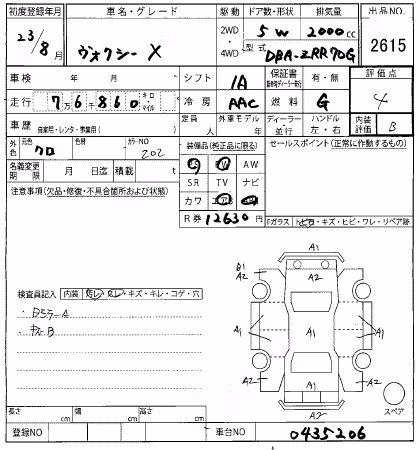 初度登録年月 車名・グレード 駆動 ドア数・形状 排気量 出品NO.
23/8月 ヴォクシー X 2WD・4WD 5W 2000cc 2615
型式 DBA-ZRR70G
車検 年 月 シフト IA 保証書 有・無 評価点
走行 7万6千860 キロ・マイル 冷房 AAC 燃料 G 4
車歴 自家用・レンタ・事業用( ) 定員 人 外車モデル 年 ディーラー・並行 ハンドル 左・右 内装評価 B
外色 元色 クロ 色替 カラーNO 202 装備品(純正品に限る) セールスポイント(正常に作動するもの)
名義変更期限 月 日迄 積載 t PS PW AW
注意事項(欠品・修復・不具合箇所および状態) SR TV ナビ
カワ エアB
R券 12630円 Fガラス トビ石・キズ・ヒビ・ワレ・リペア跡
A1
B1 A2 A2 A2
検査員記入 内装 汚レ・スレ・キズ・キレ・コゲ・穴
A1 A1 A1
・キズB
A2 A1 A2
スペア
A2
長さ cm 幅 cm 高さ cm
登録NO 車台NO 0435206